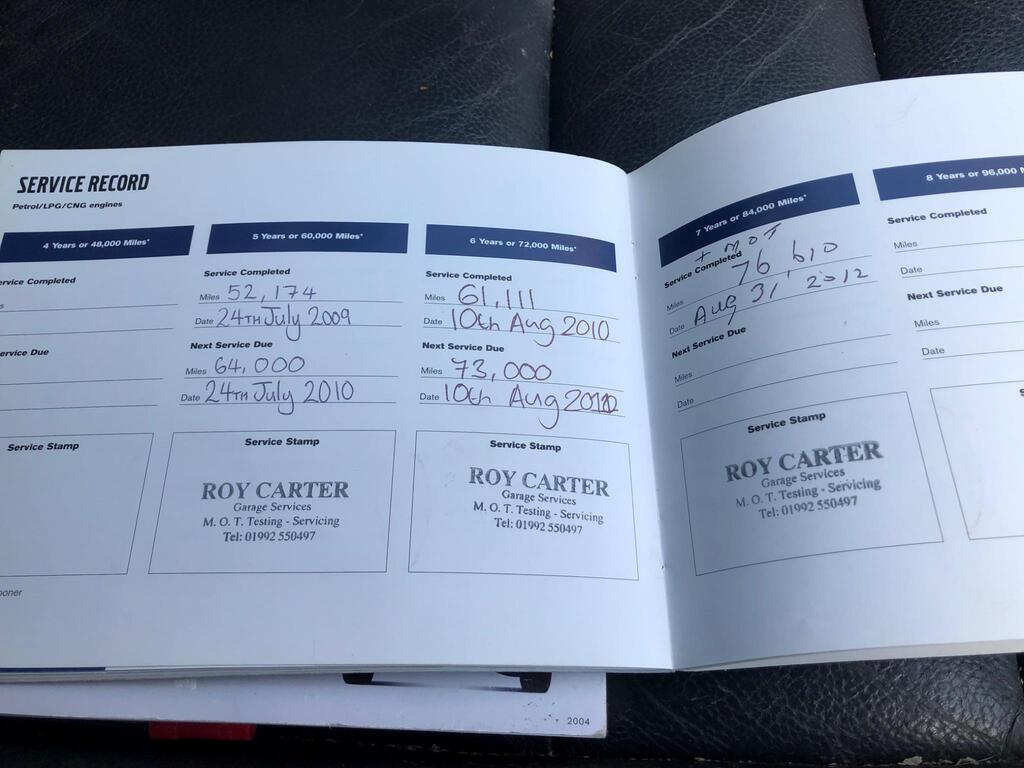 SERVICE RECORD
Petrol/LPG/CNG engines
4 Years or 48,000 Miles*
ervice Completed
s
ervice Due
Service Stamp
ooner
5 Years or 60,000 Miles*
Service Completed
Miles 52,174
Date 24TH July 2009
Next Service Due
Miles 64,000
Date 24TH July 2010
Service Stamp
ROY CARTER
Garage Services
M. O. T. Testing - Servicing
Tel: 01992 550497
6 Years or 72,000 Miles*
Service Completed
Miles 61,111
Date 10th Aug 2010
Next Service Due
Miles 73,000
Date 10th Aug
Service Stamp
ROY CARTER
Garage Services
M. O. T. Testing - Servicing
Tel: 01992 550497
7 Years or 84,000 Miles*
+ MOT
Service Completed
Miles 76,610
Date Aug 31, 2012
Next Service Due
Miles
Date
Service Stamp
ROY CARTER
Garage Services
M. O. T. Testing - Servicing
Tel: 01992 550497
8 Years or 96,000 M
Service Completed
Miles
Date
Next Service Due
Miles
Date
2004